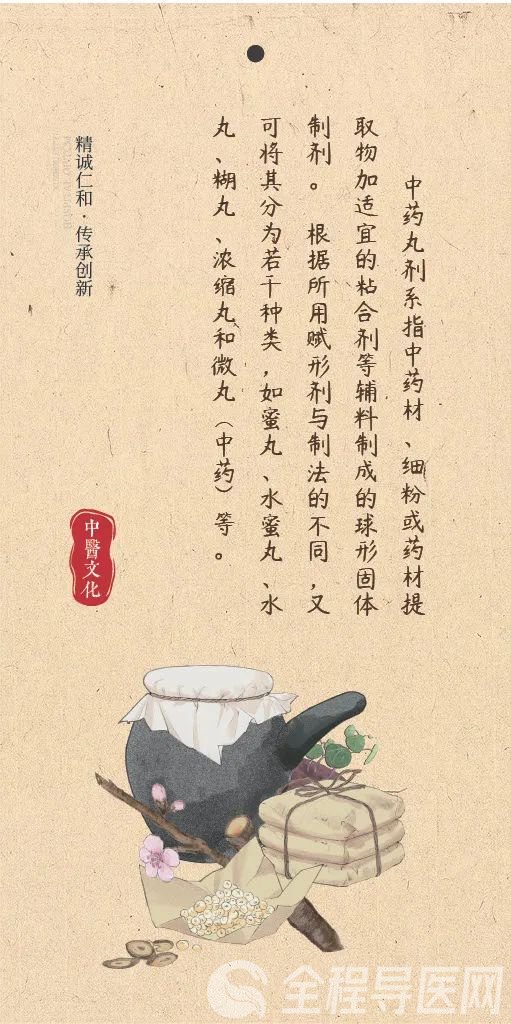 中药丸剂系指中药材、细粉或药材提
取物加适宜的粘合剂等辅料制成的球形固体
制剂。 根据所用赋形剂与制法的不同,又
可将其分为若干种类,如蜜丸、水蜜丸、水
丸、糊丸、浓缩丸和微丸(中药)等。
精诚仁和·传承创新
中醫文化
全程导医网